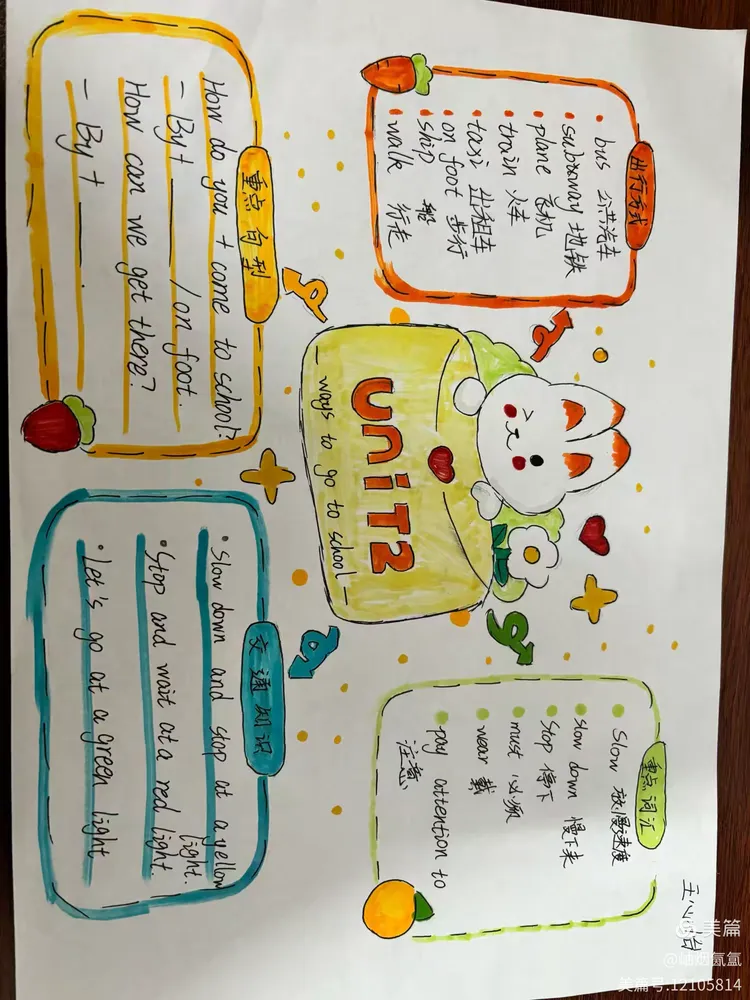 出行方式
bus 公共汽车
subway 地铁
plane 飞机
train 火车
taxi 出租车
on foot 步行
ship 船
walk 行走
重点句型
How do you + come to school?
- By + ____ / on foot.
How can we get there?
- By + ____.
UNIT2
— ways to go to school —
重点词汇
Slow 放慢速度
slow down 慢下来
Stop 停下
must 必须
wear 戴
pay attention to
注意
交通知识
Slow down and stop at a yellow
light.
Stop and wait at a red light.
Let's go at a green light
美篇
氤氲
美篇号:12105814